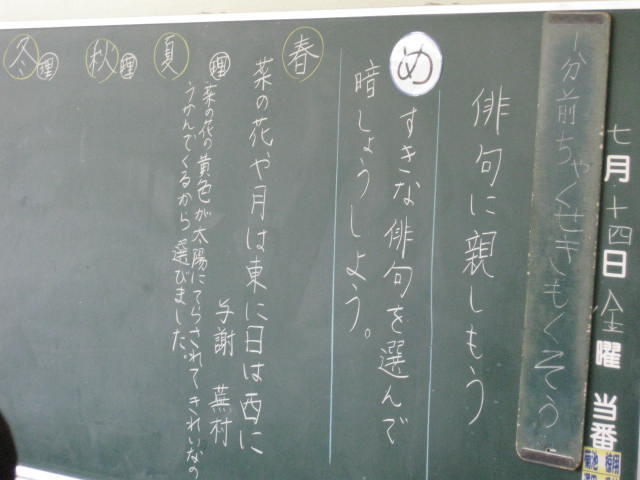 七月十四日金曜 当番
1分前ちゃくせきもくそう
俳句に親しもう
め すきな俳句を選んで
暗しょうしよう。
春 菜の花や月は東に日は西に
与謝 蕪村
理 菜の花の黄色が太陽にてらされてきれいなの
うかんでくるから選びました。
夏
秋 理
冬 理